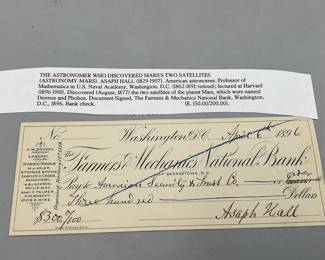 THE ASTRONOMER WHO DISCOVERED MARS'S TWO SATELLITES
(ASTRONOMY-MARS). ASAPH HALL (1829-1907). American astronomer. Professor of
Mathematics in U.S. Naval Academy, Washington, D.C. (1862-1891; retired); lectured at Harvard
(1896-1901). Discovered (August, 1877) the two satellites of the planet Mars, which were named
Deimos and Phobos. Document Signed, The Farmers & Mechanics National Bank, Washington,
D.C., 1896. Bank check. (E. 150.00/200.00).
No. Washington, D.C. April 6th 1896
The Farmers & Mechanics National Bank
OF GEORGETOWN, D.C.
Pay to American Security & Trust Co. or order
Three hundred Dollars
$300 00/100 Asaph Hall